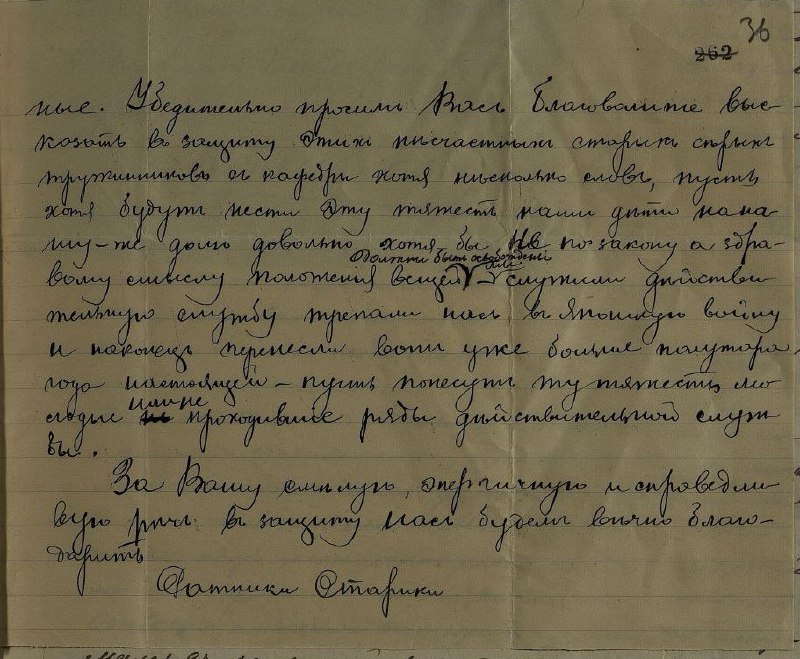 36
262
ные. Убедительно просимъ Васъ Благоволите выс-
козать в защиту этихъ нисчастныхъ старыхъ сѣрыхъ
тружинниковъ съ кафедры хотя нисколько словъ, пусть
хотя будутъ нести эту тяжесть наши дѣти на на-
шу-же долю довольно хотя-бы не по закону а здра-
должны быть освобождены
вому смыслу положения вещей служили дѣйстви-
тельную службу трепали насъ в Японскую войну
и наконецъ перенесли вотъ уже больше полутара
года настоящей - пусть понесутъ ту тяжесть мо-
лодые ими не проходившие ряды дѣйствительной служ
бы.
За Вашу смѣлую, энергичную и справедли-
вую рѣчь в защиту насъ будемъ вѣчно благо-
дарить
Ратники Старики